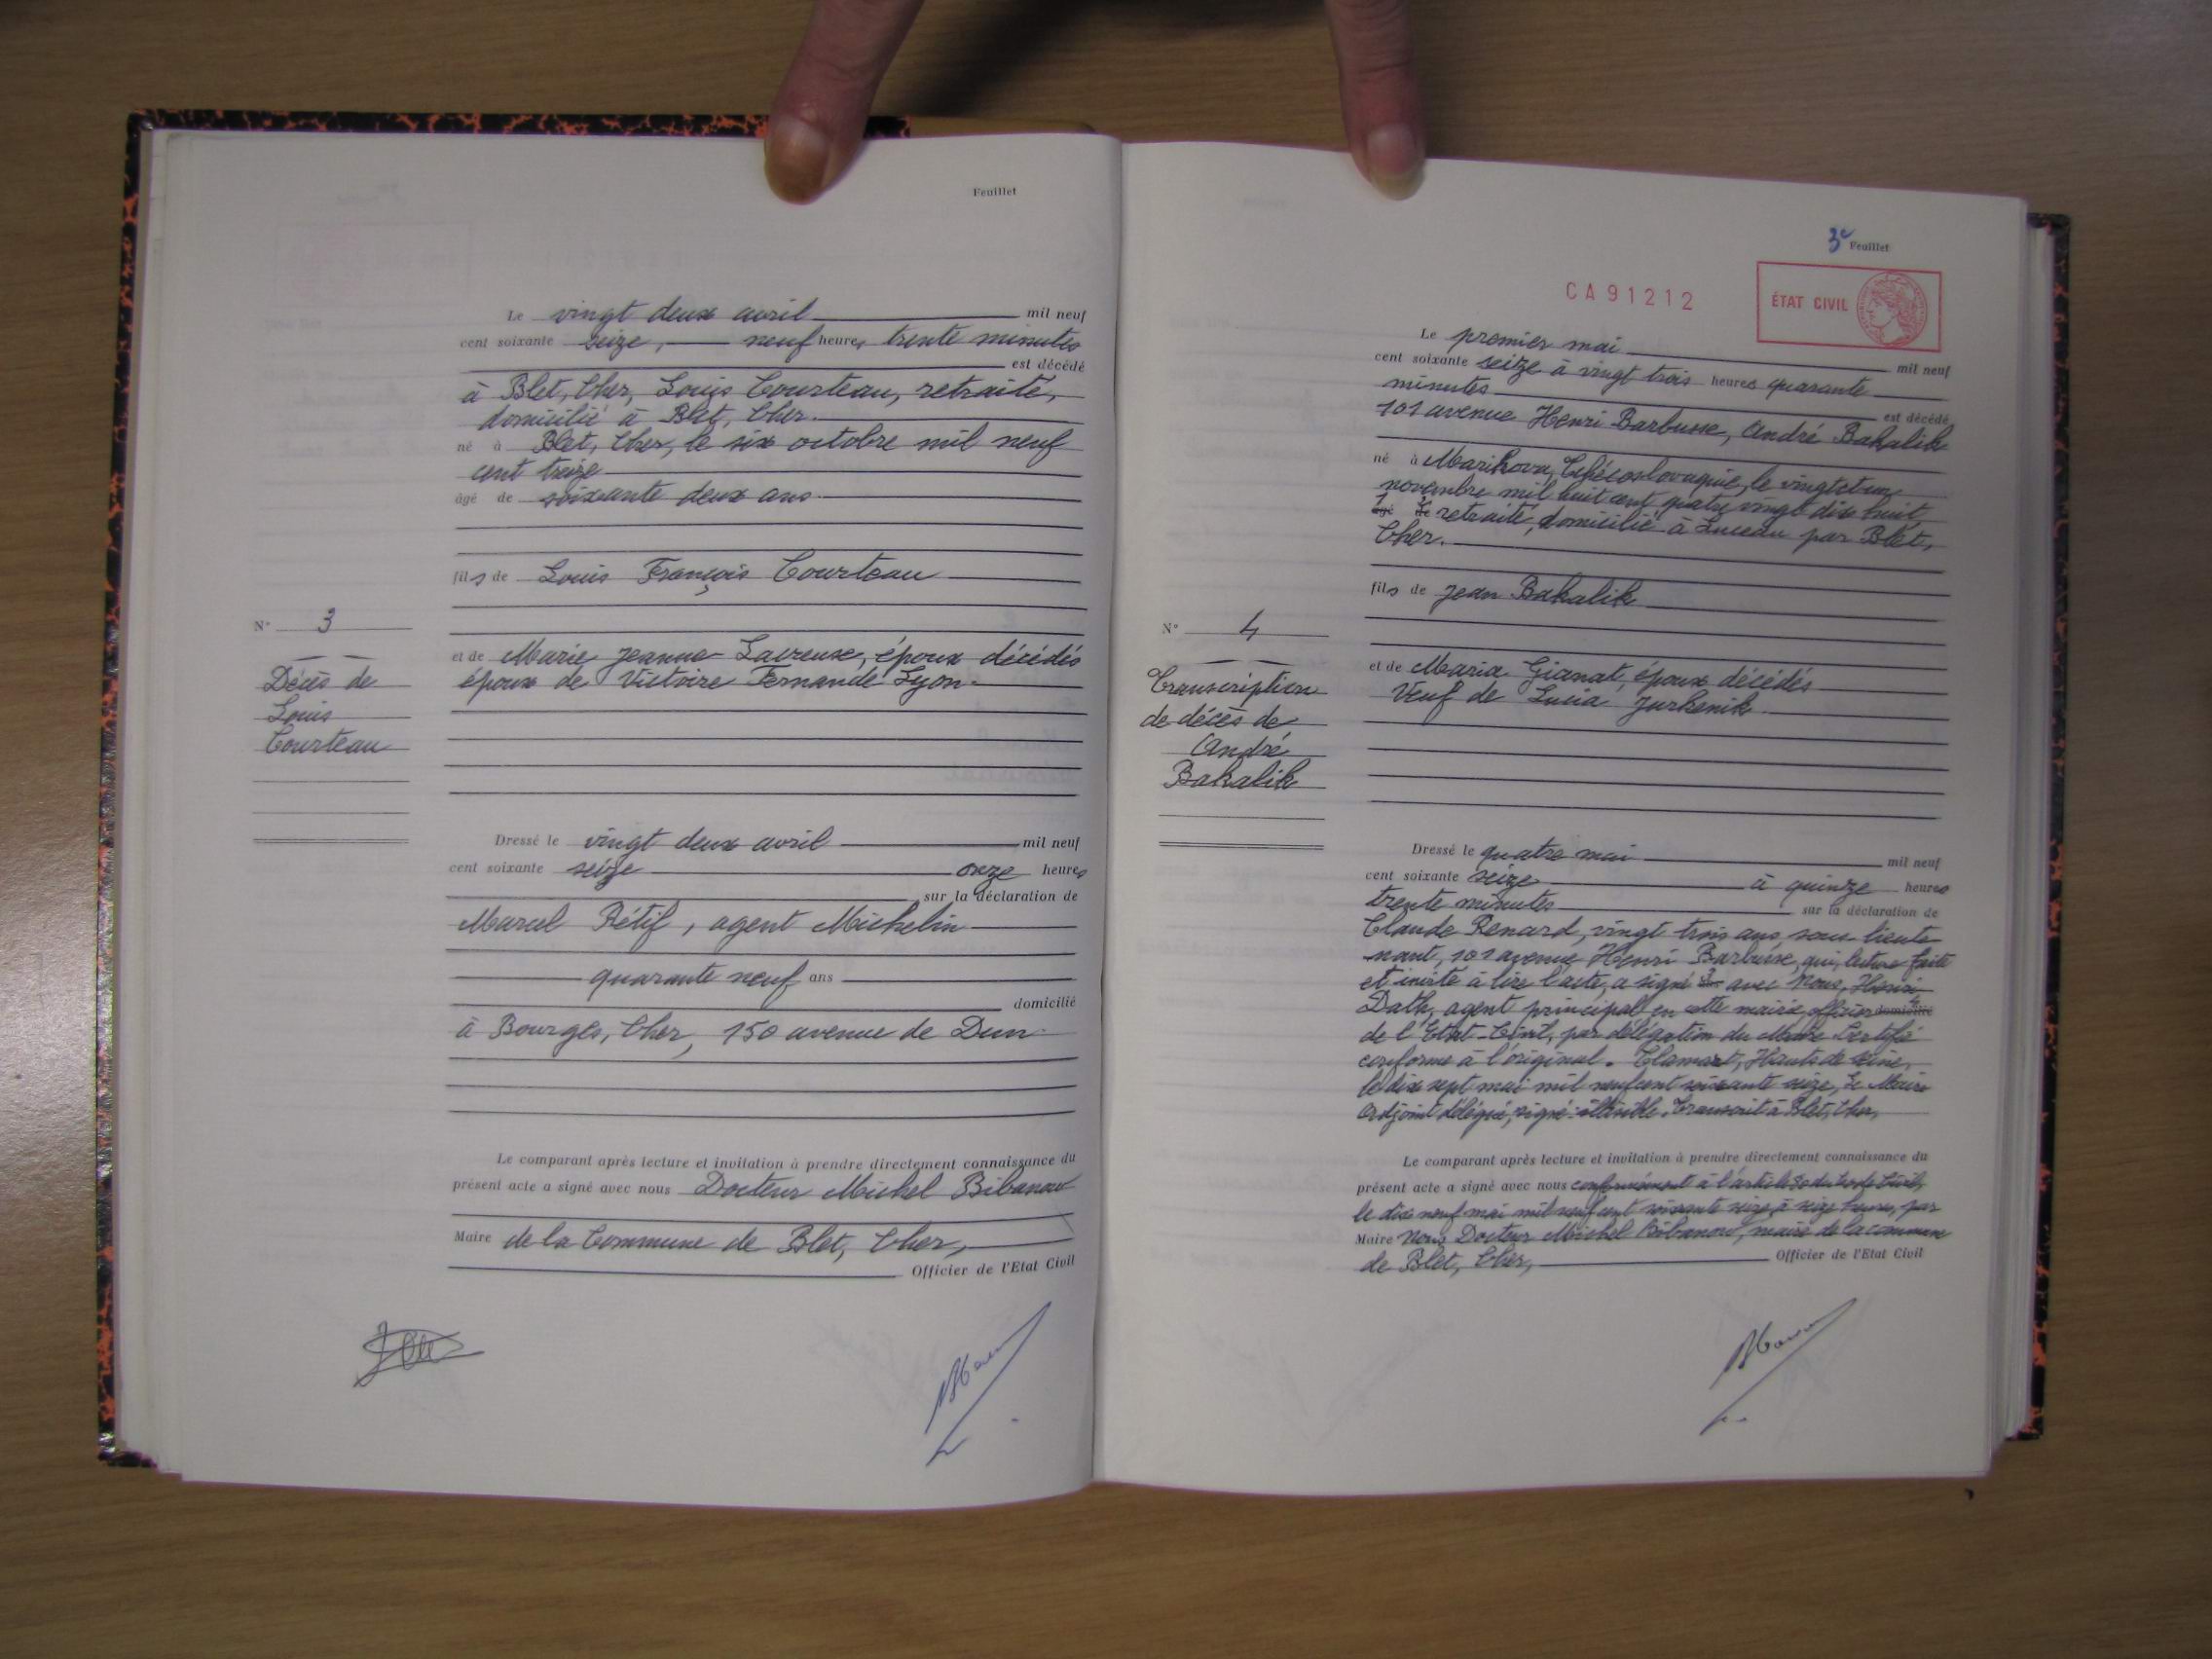 Feuillet
Le vingt deux avril mil neuf
cent soixante seize, neuf heures trente minutes
est décédé
à Blet, Cher, Louis Courteau, retraité,
domicilié à Blet, Cher.
né à Blet, Cher, le six octobre mil neuf
cent treize
âgé de soixante deux ans
fils de Louis François Courteau
N° 3
Décès de
Louis
Courteau
et de Marie Jeanne Lavreuse, époux décédés
époux de Victoire Fernande Lyon.
Dressé le vingt deux avril mil neuf
cent soixante seize onze heures
sur la déclaration de
Marcel Rétif, agent Michelin
quarante neuf ans
domicilié
à Bourges, Cher, 150 avenue de Dun
Le comparant après lecture et invitation à prendre directement connaissance du
présent acte a signé avec nous Docteur Michel Bibanow
Maire de la Commune de Blet, Cher,
Officier de l'Etat Civil
3e Feuillet
CA91212
ÉTAT CIVIL
Le premier mai mil neuf
cent soixante seize à vingt trois heures quarante
minutes est décédé
101 avenue Henri Barbusse, André Bakalik
né à Marikova, Tchécoslovaquie, le vingt et un
novembre mil huit cent quatre vingt dix huit
âgé de retraité, domicilié à Luceau par Blet,
Cher.
fils de Jean Bakalik
N° 4
Transcription
de décès de
André
Bakalik
et de Maria Gianat, époux décédés
Veuf de Lucia Jurkenik
Dressé le quatre mai mil neuf
cent soixante seize à quinze heures
trente minutes sur la déclaration de
Claude Renard, vingt trois ans, sous-lieute
nant, 101 avenue Henri Barbusse, qui, lecture faite
et invité à lire l'acte, a signé avec Nous, Henri
Dath, agent principal en cette mairie, officier domicilié
de l'Etat-Civil, par délégation du Maire Certifié
conforme à l'original. Clamart, Hauts de Seine,
le dix sept mai mil neuf cent soixante seize, Le Maire
adjoint délégué, signé: illisible. Transcrit à Blet, Cher,
Le comparant après lecture et invitation à prendre directement connaissance du
présent acte a signé avec nous conformément à l'article 80 du Code Civil,
le dix neuf mai mil neuf cent soixante seize à seize heures, par
Maire Nous Docteur Michel Bibanow, maire de la commune
de Blet, Cher, Officier de l'Etat Civil